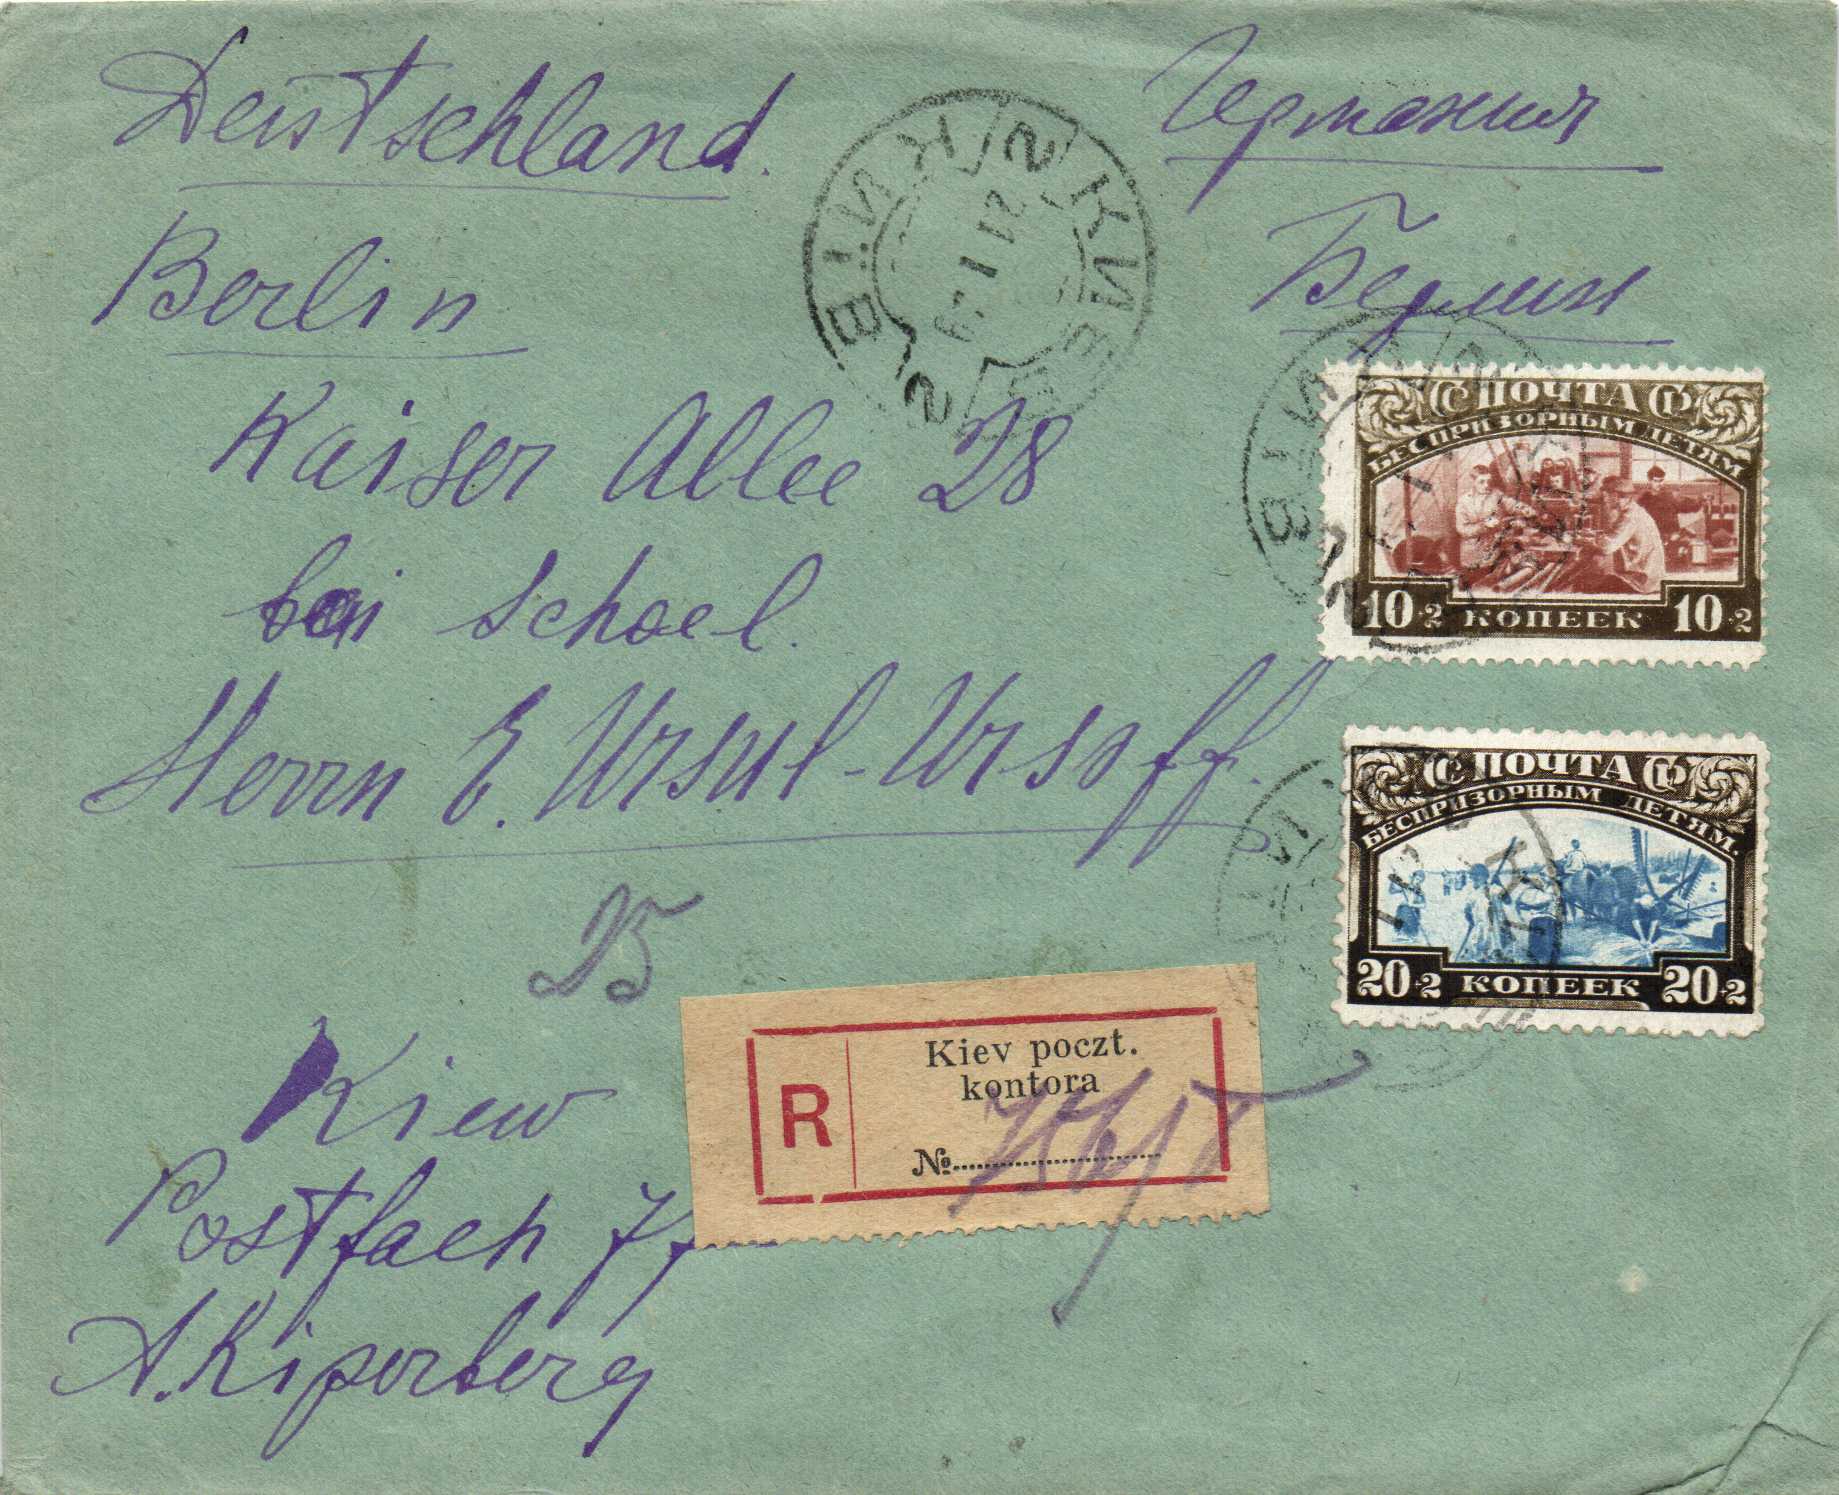 Deutschland.
Berlin
Kaiser Allee 28
bei Schoel.
Herrn E. Ursul-Ursoff.
25
Германия
Берлин
КИЇВ
КИЕВ
С ПОЧТА СР
БЕСПРИЗОРНЫМ ДЕТЯМ
10+2 КОПЕЕК 10+2
С ПОЧТА СР
БЕСПРИЗОРНЫМ ДЕТЯМ.
20+2 КОПЕЕК 20+2
R
Kiev poczt.
kontora
№
Kiew
Postfach
A. Kiperberg